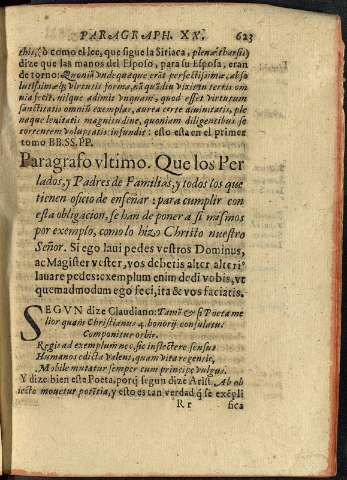 PARAGRAPH. XX. 623
this, (ò como el lee, que sigue la Siriaca, plenæ tharsis)
dize que las manos del Esposo, para su Esposa, eran
de torno: Quoniã undequaque erãt perfectissimæ, abso
lutissimæq; virtutis forma, nã quãdiu vixit in terris om
nia fecit, nilque adimit vnquam, quod esset virtutum
sanctitatis omnis exemplar, aurea certe diuinitatis, ple
naque lenitatis magnitudine, quoniam diligentibus se
torrentem voluptatis infundit: esto esta en el primer
tomo BB. SS. PP.
Paragrafo vltimo. Que los Per
lados, y Padres de Familias, y todos los que
tienen oficio de enseñar: para cumplir con
esta obligacion, se han de poner a si mismos
por exemplo, como lo hizo Christo nuestro
Señor. Si ego laui pedes vestros Dominus,
ac Magister vester, vos debetis alter alteri9
lauare pedes: exemplum enim dedi vobis, vt
quemadmodum ego feci, ita & vos faciatis.
SEGVN dize Claudiano: Tamẽ & si Poeta me
lior quam Christianus 4. honorij consulatus
Componitur orbis.
Regis ad exemplum nec, sic inflectere sensus
Humanos edicta valent, quam vita regentis,
Mobile mutatur semper cum principe vulgus.
Y dize bien este Poeta, porq̃ segun dize Arist. Ab ob
iecto mouetur potẽtia, y esto es tan verdad q̃ se exẽpli
R r fica